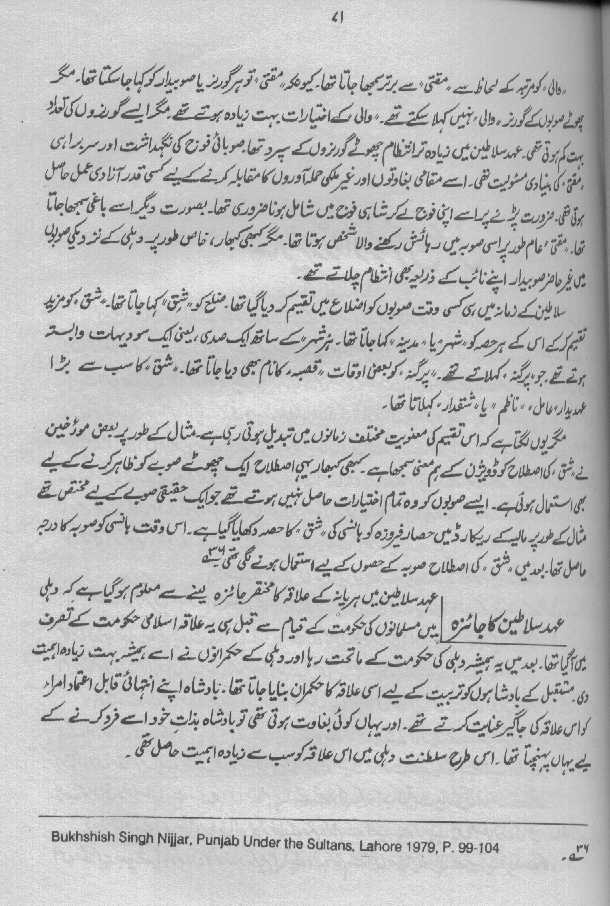 ۷۱
"والی" کو مرتبہ کے لحاظ سے "مفتی" سے برتر سمجھا جاتا تھا۔ کیونکہ "مفتی" تو ہر گورنر یا صوبیدار کو کہا جاسکتا تھا۔ مگر
چھوٹے صوبوں کے گورنر "والی" نہیں کہلا سکتے تھے۔ "والی" کے اختیارات بہت زیادہ ہوتے تھے۔ مگر ایسے گورنروں کی تعداد
بہت کم ہوتی تھی۔ عہد سلاطین میں زیادہ تر انتظام چھوٹے گورنروں کے سپرد تھا۔ صوبائی فوج کی نگہداشت اور سربراہی
"مفتی" کی بنیادی مسئولیت تھی۔ اسے مقامی بغاوتوں اور غیر ملکی حملہ آوروں کا مقابلہ کرنے کے لیے کسی قدر آزادی عمل حاصل
ہوتی تھی۔ ضرورت پڑنے پر اسے اپنی فوج لے کر شاہی فوج میں شامل ہونا ضروری تھا۔ بصورت دیگر اسے باغی سمجھا جاتا
تھا۔ "مفتی" عام طور پر اسی صوبہ میں رہائش رکھنے والا شخص ہوتا تھا۔ مگر کبھی کبھار، خاص طور پر، دہلی کے نزدیکی صوبوں
میں غیر حاضر صوبیدار اپنے نائب کے ذریعہ بھی انتظام چلاتے تھے۔
سلاطین کے زمانہ میں ہی کسی وقت صوبوں کو اضلاع میں تقسیم کر دیا گیا تھا۔ ضلع کو "شق" کہا جاتا تھا۔ "شق" کو مزید
تقسیم کرکے اس کے ہر حصہ کو "شہر" یا "مدینہ" کہا جاتا تھا۔ ہر "شہر" کے ساتھ ایک صدی، یعنی ایک سو دیہات وابستہ
ہوتے تھے۔ جو "پرگنہ" کہلاتے تھے۔ "پرگنہ" کو بعض اوقات "قصبہ" کا نام بھی دیا جاتا تھا۔ "شق" کا سب سے بڑا
عہدیدار "عامل"، "ناظم" یا "شقدار" کہلاتا تھا۔
مگر یوں لگتا ہے کہ اس تقسیم کی معنویت مختلف زمانوں میں تبدیل ہوتی رہی ہے۔ مثال کے طور پر بعض مورّخین
نے "شق" کی اصطلاح کو ڈویژن کے ہم معنی سمجھا ہے۔ کبھی کبھار یہی اصطلاح ایک چھوٹے صوبے کو ظاہر کرنے کے لیے
بھی استعمال ہوئی ہے۔ ایسے صوبوں کو وہ تمام اختیارات حاصل نہیں ہوتے تھے جو ایک حقیقی صوبے کے لیے مختص تھے
مثال کے طور پر مالیہ کے ریکارڈ میں حصار فیروزہ کو ہانسی کی "شق" کا حصہ دکھایا گیا ہے۔ اس وقت ہانسی کو صوبہ کا درجہ
حاصل تھا۔ بعد میں "شق" کی اصطلاح صوبہ کے حصوں کے لیے استعمال ہونے لگی تھی ۳۶؎
عہد سلاطین کا جائزہ
عہد سلاطین میں ہریانہ کے علاقہ کا مختصر جائزہ لینے سے معلوم ہو گیا ہے کہ دہلی
میں مسلمانوں کی حکومت کے قیام سے قبل ہی یہ علاقہ اسلامی حکومت کے تصرف
میں آگیا تھا۔ بعد میں یہ ہمیشہ دہلی کی حکومت کے ماتحت رہا اور دہلی کے حکمرانوں نے اسے ہمیشہ بہت زیادہ اہمیت
دی۔ مستقبل کے بادشاہوں کو تربیت کے لیے اسی علاقہ کا حکمران بنایا جاتا تھا۔ بادشاہ اپنے انتہائی قابل اعتماد امراء
کو اس علاقہ کی جاگیر عنایت کرتے تھے۔ اور یہاں کوئی بغاوت ہوتی تھی تو بادشاہ بذاتِ خود اسے فرد کرنے کے
لیے یہاں پہنچتا تھا۔ اس طرح سلطنت دہلی میں اس علاقہ کو سب سے زیادہ اہمیت حاصل تھی۔
۳۶؎ Bukhshish Singh Nijjar, Punjab Under the Sultans, Lahore 1979, P. 99-104